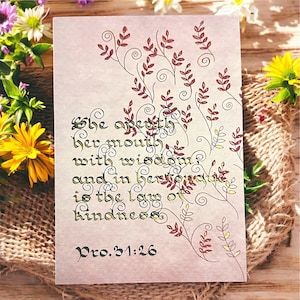 She openeth
her mouth
with wisdom;
and in her tongue
is the law of
kindness.
Pro.31:26